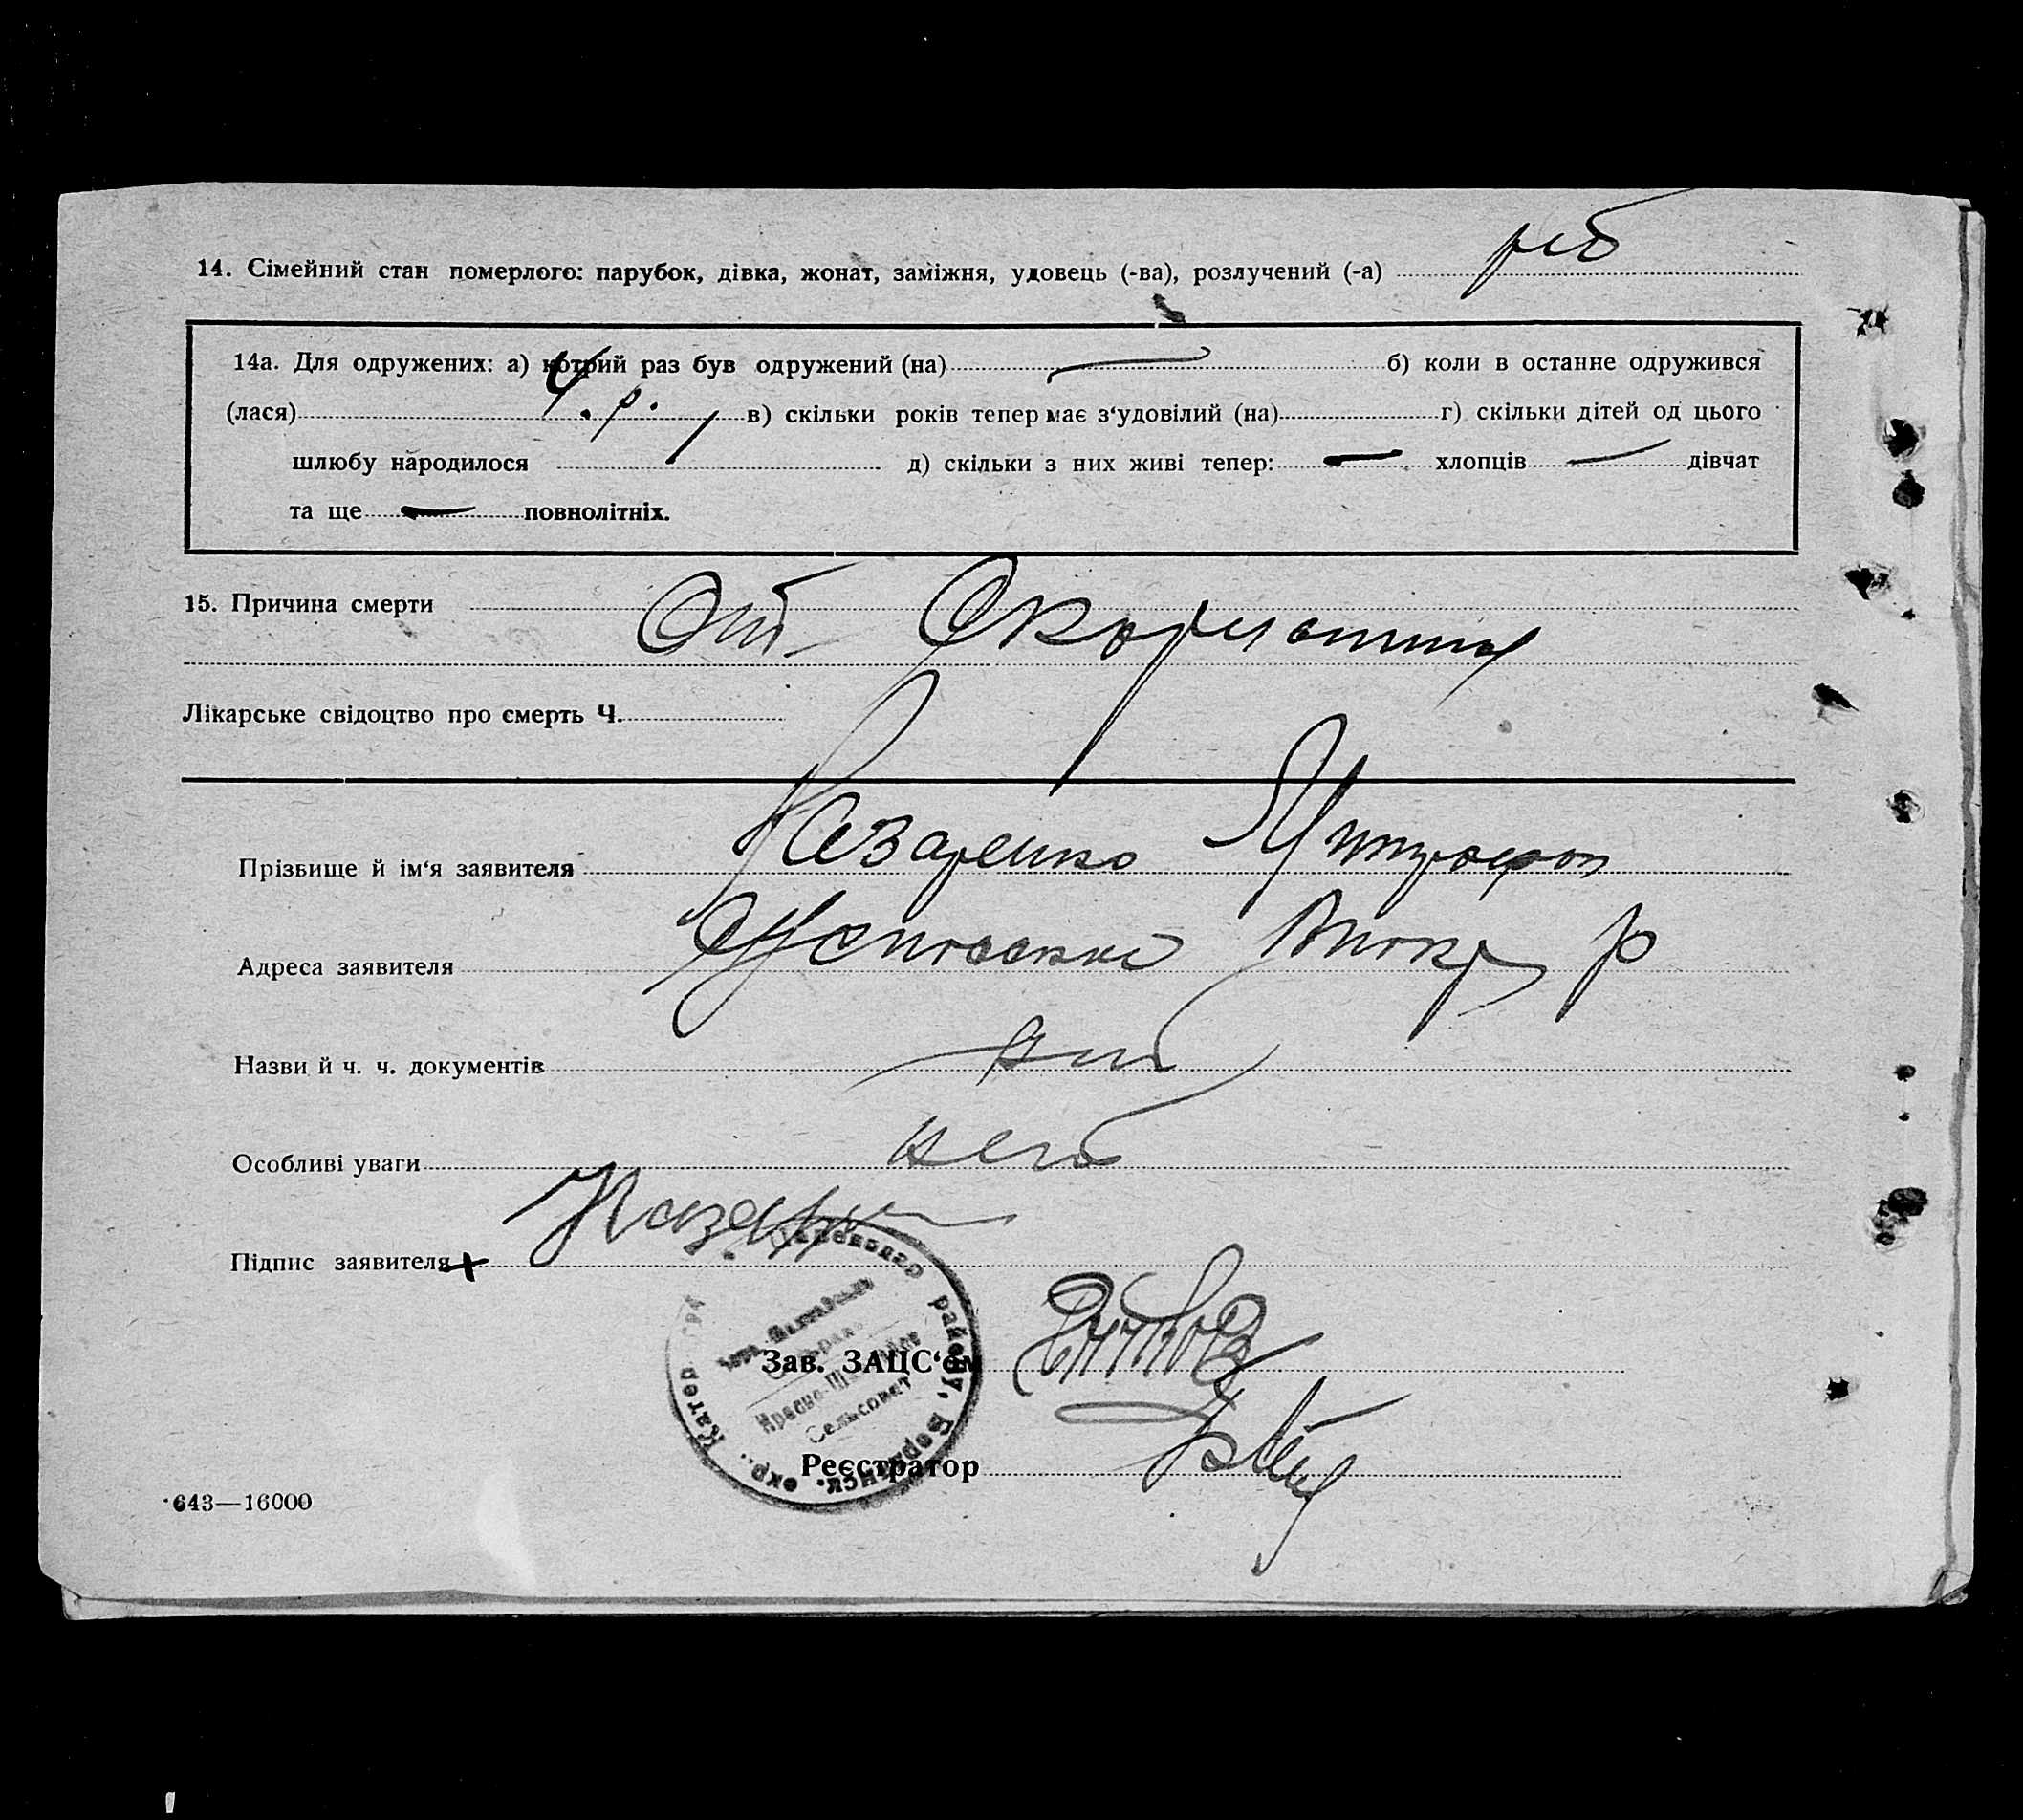 14. Сімейний стан померлого: парубок, дівка, жонат, заміжня, удовець (-ва), розлучений (-а) реб
14а. Для одружених: а) котрий раз був одружений (на) — б) коли в останне одружився
(лася) в) скільки років тепер має з‘удовілий (на) г) скільки дітей од цього
шлюбу народилося д) скільки з них живі тепер: — хлопців — дівчат
та ще — повнолітніх.
15. Причина смерти От Скорлатины
Лікарське свідоцтво про смерть Ч.
Прізвище й ім‘я заявителя Назаренко Митрофон
Адреса заявителя р
Назви й ч. ч. документів нет
Особливі уваги нет
Підпис заявителя +
Зав. ЗАЦС‘ом
Реєстратор
району, Бердянск. окр., Катер
Сельсовет
643—16000